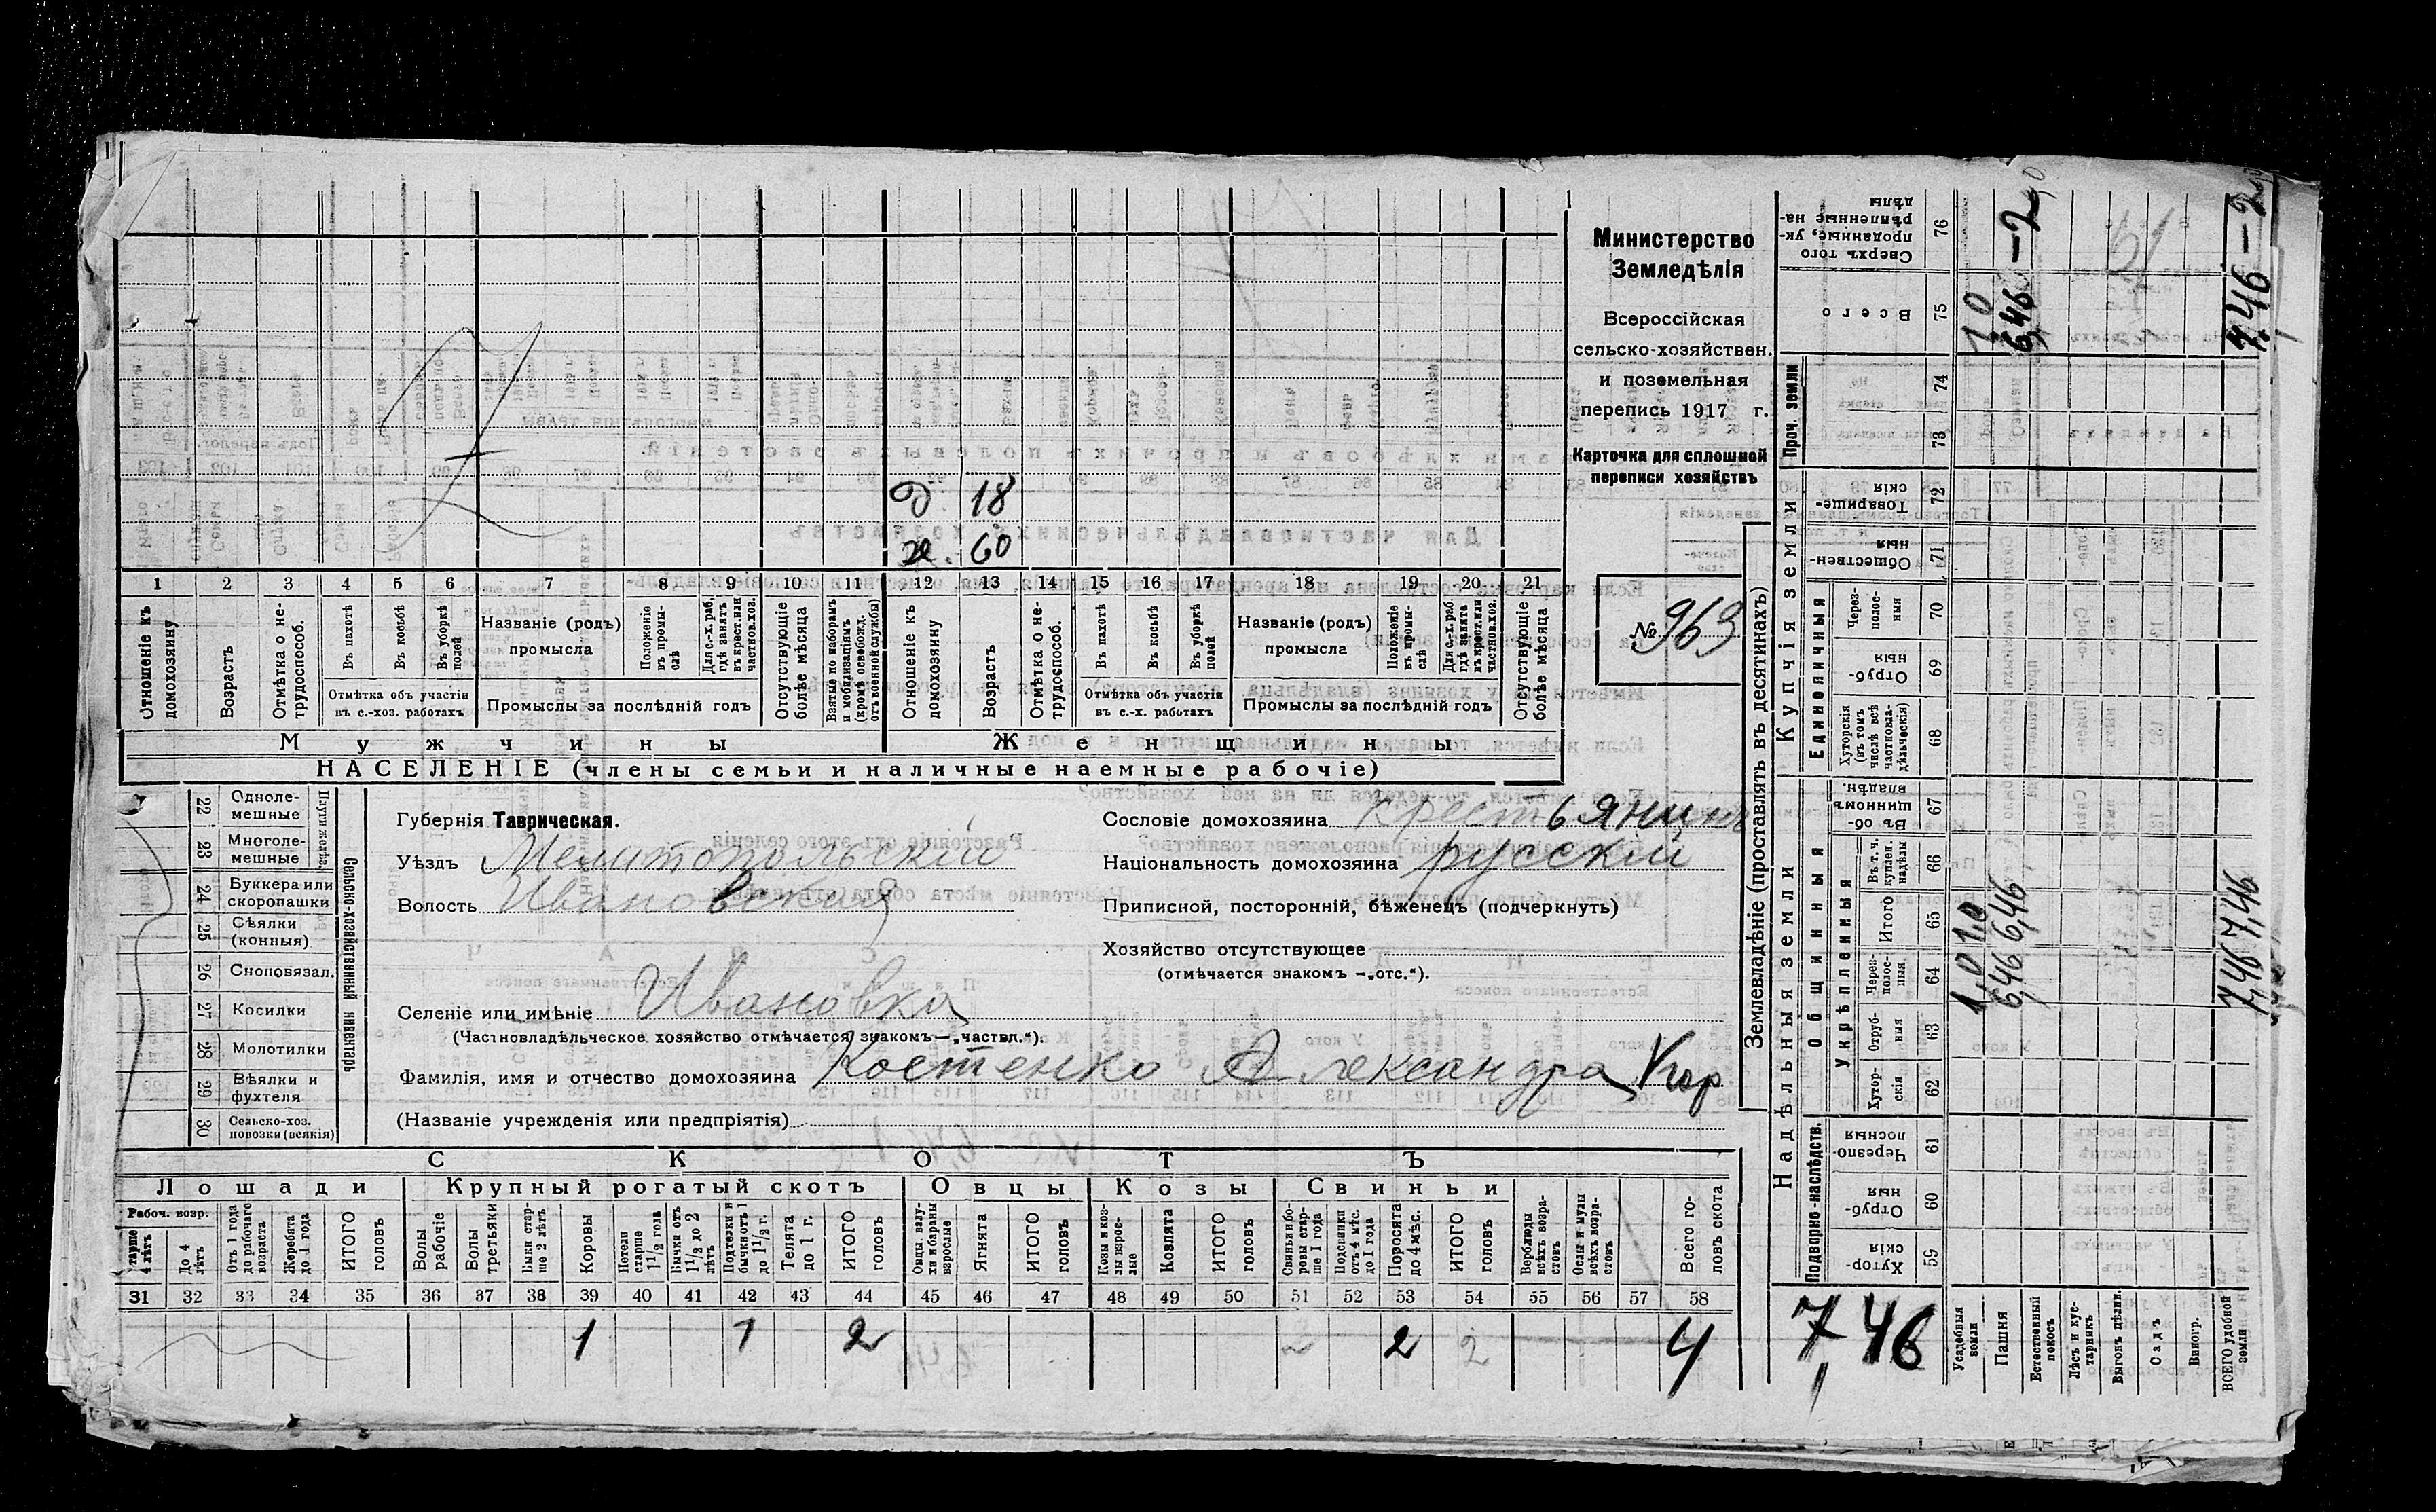 д. 18
х. 60
1 2 3 4 5 6 7 8 9 10 11 12 13 14 15 16 17 18 19 20 21
Отношеніе къ домохозяину
Возрастъ
Отмѣтка о нетрудоспособ.
Въ пахотѣ
Въ косьбѣ
Въ уборкѣ полей
Отмѣтка объ участіи
въ с.-хоз. работахъ
Названіе (родъ)
промысла
Положеніе въ промыслѣ
Для с.-х. раб. гдѣ занятъ въ крест. или частнов. хоз.
Промыслы за послѣдній годъ
Отсутствующіе болѣе мѣсяца
Взятые наборамъ и мобилизаціямъ (кромѣ освобожд. отъ военной службы)
Отношеніе къ домохозяину
Возрастъ
Отмѣтка о нетрудоспособ.
Въ пахотѣ
Въ косьбѣ
Въ уборкѣ полей
Отмѣтка объ участіи
въ с.-х. работахъ
Названіе (родъ)
промысла
Положеніе въ промыслѣ
Для с.-х. раб. гдѣ занята въ крест. или частнов. хоз.
Промыслы за послѣдній годъ
Отсутствующіе болѣе мѣсяца
Мужчины
Женщины
НАСЕЛЕНІЕ (члены семьи и наличные наемные рабочіе)
Министерство
Земледѣлія
Всероссійская
сельско-хозяйствен.
и поземельная
перепись 1917 г.
Карточка для сплошной
переписи хозяйствъ
№ 969
22 Однолемешные
23 Многолемешные
24 Буккера или скоропашки
25 Сѣялки (конныя)
26 Сноповязал.
27 Косилки
28 Молотилки
29 Вѣялки и фухтеля
30 Сельско-хоз. повозки (всякія)
Плуги желѣз.
Сельско-хозяйственный инвентарь
Губернія Таврическая.
Уѣздъ Мелитопольскій
Волость Ивановская
Селеніе или имѣніе Ивановка
(Частновладѣльческое хозяйство отмѣчается знакомъ—„частвл.“).
Фамилія, имя и отчество домохозяина Костенко Александра Кор
(Названіе учрежденія или предпріятія)
Сословіе домохозяина крестьянинъ
Національность домохозяина русскій
Приписной, посторонній, бѣженецъ (подчеркнуть)
Хозяйство отсутствующее
(отмѣчается знакомъ —„отс.“).
СКОТЪ
Лошади Крупный рогатый скотъ Овцы Козы Свиньи
Рабоч. возр.
старше 4 лѣтъ
До 4 лѣтъ
Отъ 1 года до рабочаго возраста
Жеребята до 1 года
ИТОГО головъ
Волы рабочіе
Волы третьяки
Быки старше 2 лѣтъ
Коровы
Нетели старше 1 1/2 года
Бычки отъ 1 1/2 до 2 лѣтъ
Подтелки и бычки отъ 1 до 1 1/2 г.
Телята до 1 г.
ИТОГО головъ
Овцы, валухи и бараны взрослые
Ягнята
ИТОГО головъ
Козы и козлы взрослые
Козлята
ИТОГО головъ
Свиньи и боровы старше 1 года
Подсвинки отъ 4 мѣс. до 1 года
Поросята до 4 мѣс.
ИТОГО головъ
Верблюды всѣхъ возрастовъ
Ослы и мулы всѣхъ возрастовъ
Всего головъ скота
31 32 33 34 35 36 37 38 39 40 41 42 43 44 45 46 47 48 49 50 51 52 53 54 55 56 57 58
1 1 2 2 2 4
Землевладѣніе (проставлять въ десятинахъ)
Надѣльныя земли
Купчія земли
Проч. земли
Подворно-наслѣдств.
Общинныя
Укрѣпленныя
Единоличныя
Хуторскія 59
Отрубныя 60
Черезполосныя 61
Хуторскія 62
Отрубныя 63
Черезполосныя 64
Итого 65
Въ т. ч. куплен. надѣлы 66
Въ общинномъ владѣн. 67
Хуторскія (въ томъ числѣ всѣ частновладѣльческія) 68
Отрубныя 69
Черезполосныя 70
Общественныя 71
Товарищескія 72
73
74
Всего 75
Сверхъ того проданные, укрѣпленные надѣлы 76
7,46
Усадебныя земли 1,0 1,0 1,0
Пашня 6,46 6,46 6,46 —2
Естественный покосъ
Лѣсъ и кустарникъ
Выгонъ цѣлин.
Садъ
Виногр.
ВСЕГО удобной земли 7,46 7,46 7,46 —2